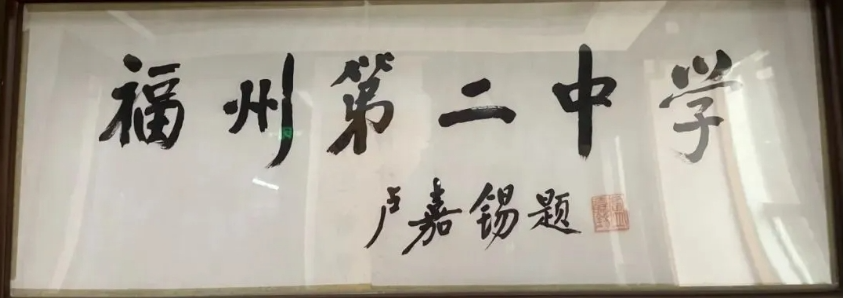 福州第二中学
卢嘉锡题